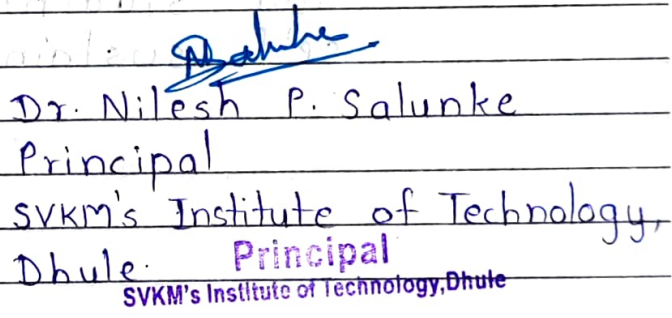 Dr. Nilesh P. Salunke
Principal
SVKM's Institute of Technology,
Dhule.
Principal
SVKM's Institute of Technology,Dhule